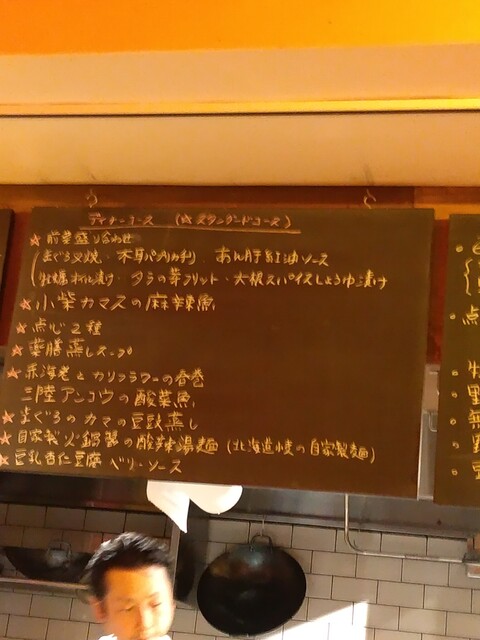 ディナーコース (☆スタンダードコース)
☆前菜盛り合わせ
(まぐろ叉焼・木耳 あん肝紅油ソース
牡蠣オイル漬け・タラの芽フリット・大根スパイスしょうゆ漬け
☆小柴カマスの麻辣魚
☆点心2種
☆薬膳蒸しスープ
☆赤海老とカリフラワーの春巻
三陸アンコウの酸菜魚
☆まぐろのカマの豆豉蒸し
☆自家製火鍋醤の酸辣湯麺 (北海道 の自家製麺)
☆豆乳杏仁豆腐 ベリーソース
点